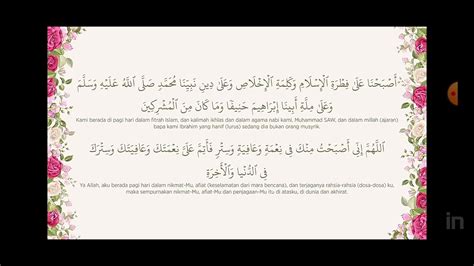 أَصْبَحْنَا عَلَى فِطْرَةِ الْإِسْلَامِ وَكَلِمَةِ الْإِخْلَاصِ وَعَلَى دِينِ نَبِيِّنَا مُحَمَّدٍ صَلَّى اللَّهُ عَلَيْهِ وَسَلَّمَ
وَعَلَى مِلَّةِ أَبِينَا إِبْرَاهِيمَ حَنِيفًا وَمَا كَانَ مِنَ الْمُشْرِكِينَ
Kami berada di pagi hari dalam fitrah Islam, dan kalimah ikhlas dan dalam agama nabi kami, Muhammad SAW, dan dalam millah (ajaran)
bapa kami Ibrahim yang hanif (lurus) sedang dia bukan orang musyrik.
اللَّهُمَّ إِنِّي أَصْبَحْتُ مِنْكَ فِي نِعْمَةٍ وَعَافِيَةٍ وَسِتْرٍ فَأَتِمَّ عَلَيَّ نِعْمَتَكَ وَعَافِيَتَكَ وَسِتْرَكَ
فِي الدُّنْيَا وَالْآخِرَةِ
Ya Allah, aku berada pagi hari dalam nikmat-Mu, afiat (keselamatan dari mara bencana), dan terjaganya rahsia-rahsia (dosa-dosa) ku,
maka sempurnakan nikmat-Mu, afiat-Mu dan penjagaan-Mu itu di atasku, di dunia dan akhirat.
in